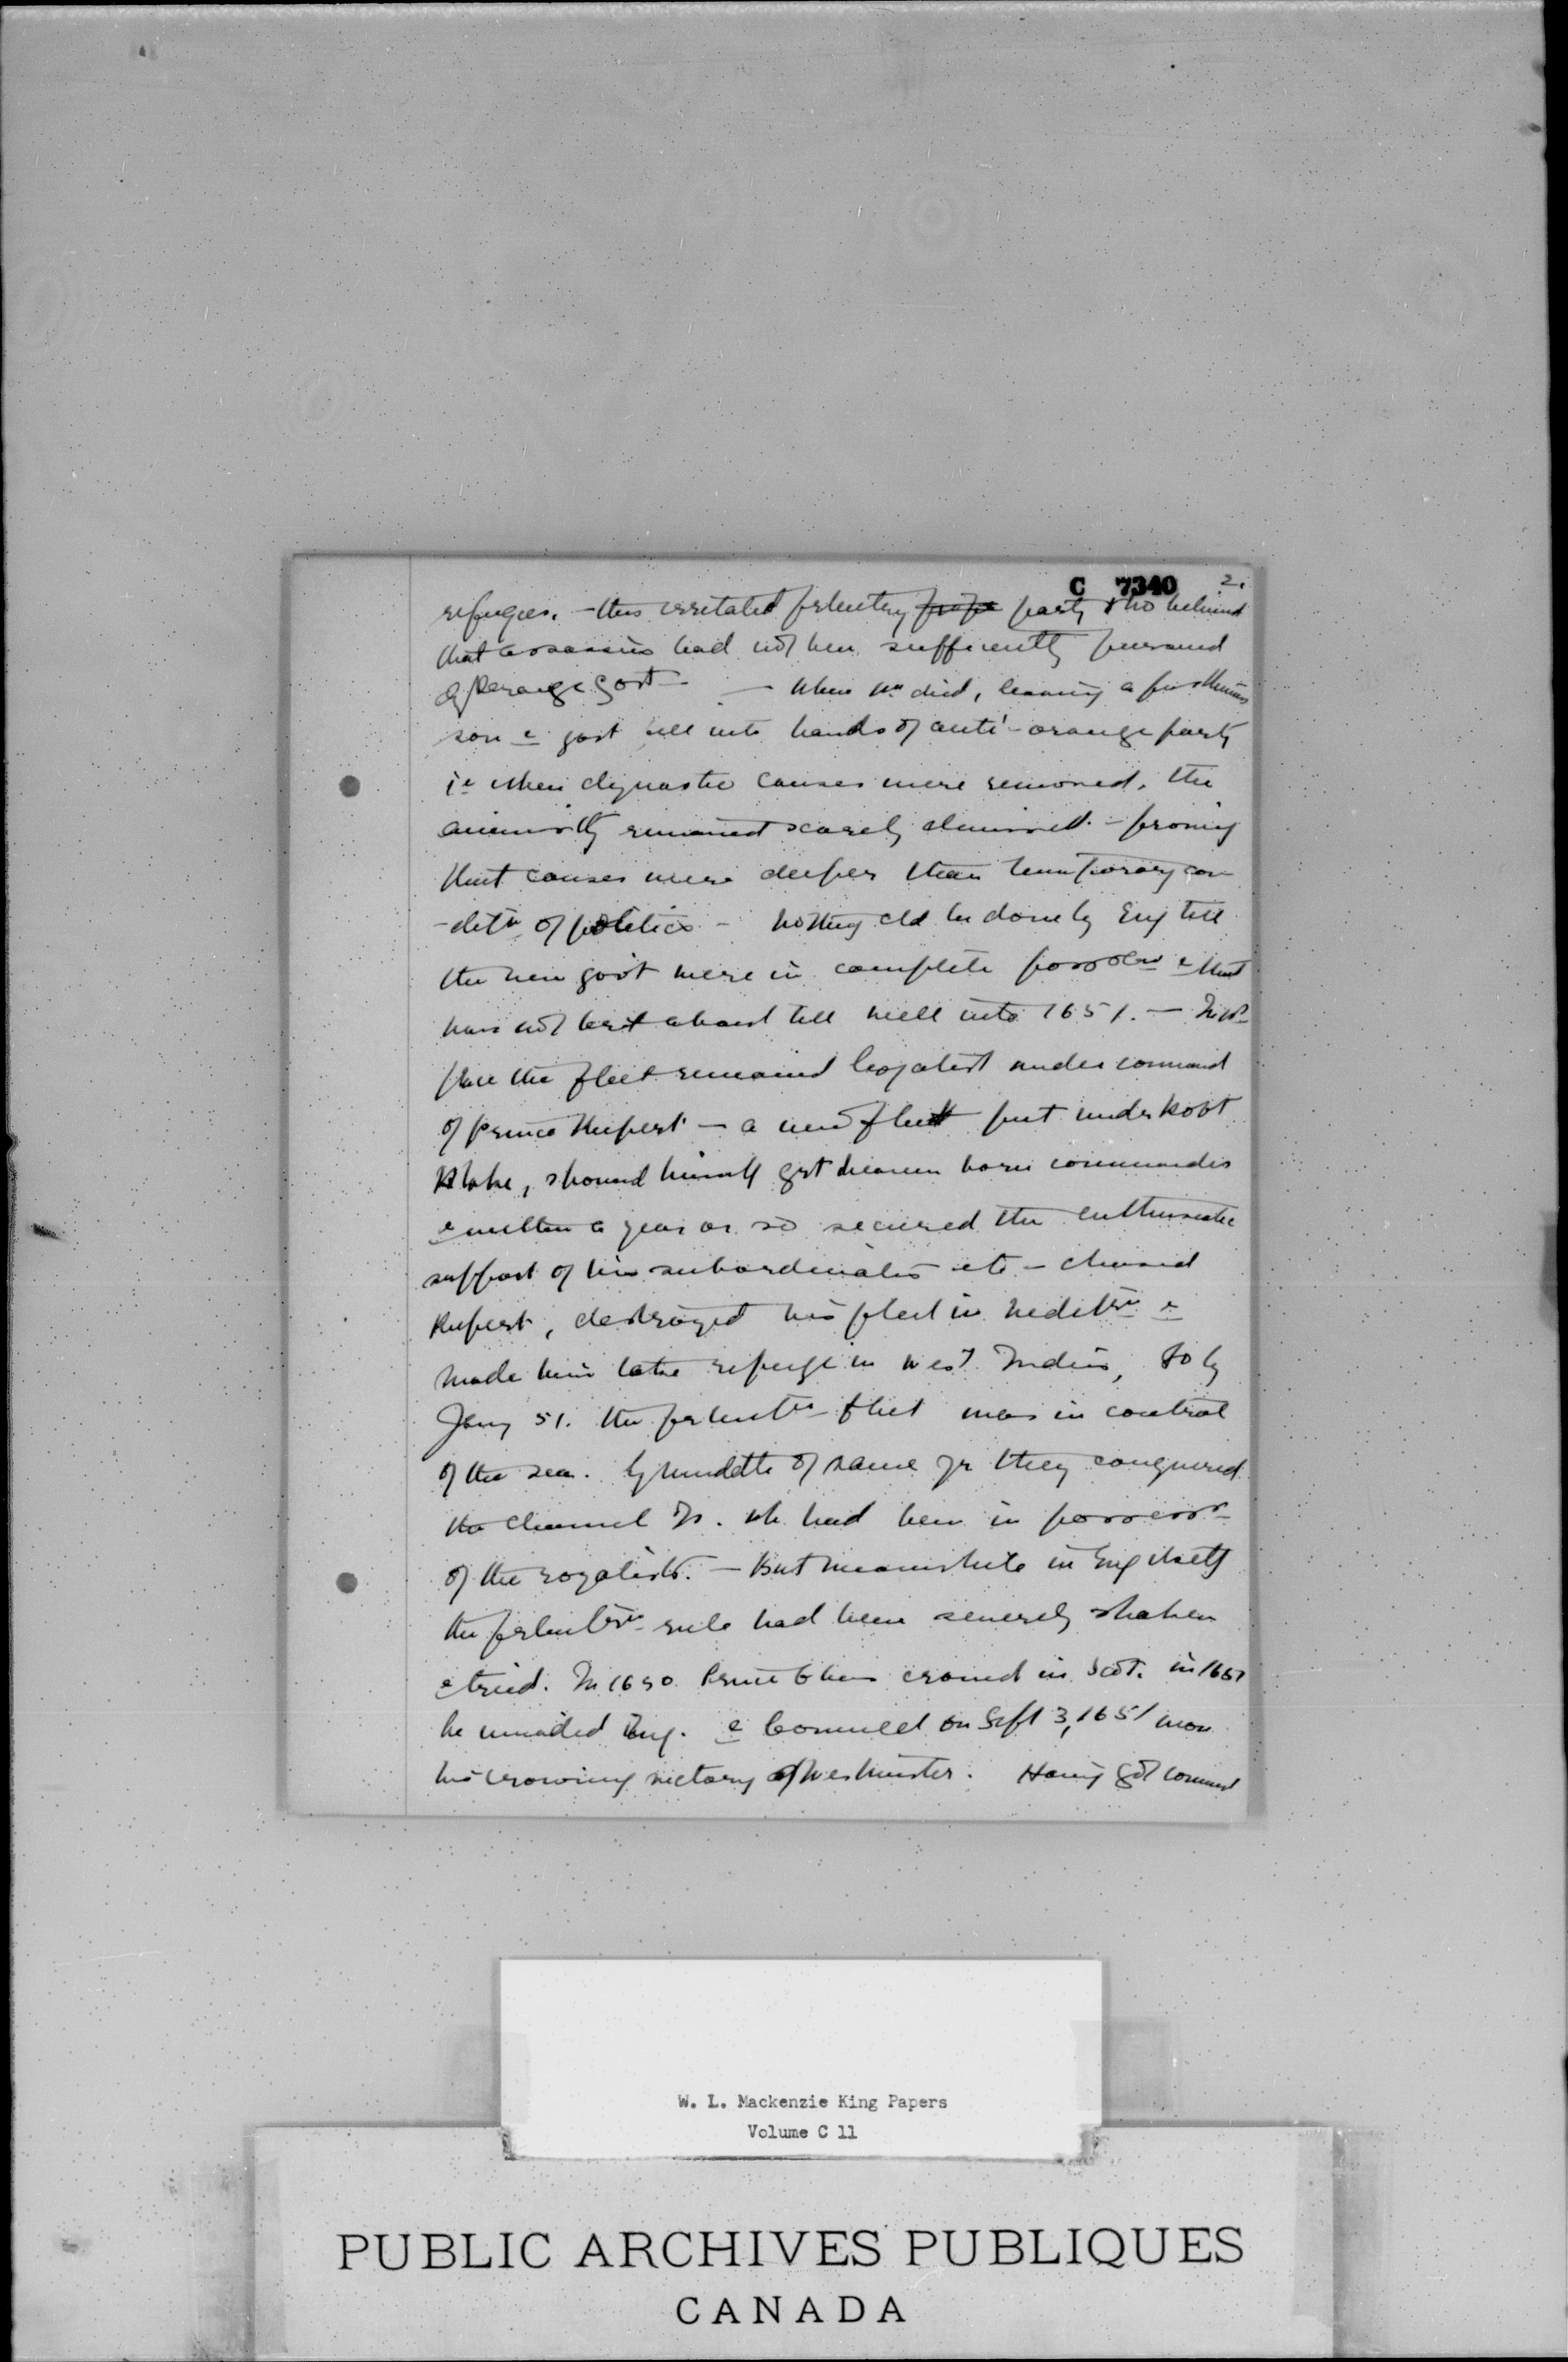 C 7340 2.
refugees. - this irritated prlmentry party who believed
that assassins had not been sufficiently pursued
by Orange govt - When Wm died, leaving a posthumous
son & govt fell into hands of anti-orange party
ie when dynastic causes were removed, the
animosity remained scarcely diminishd. - proving
that causes were deeper than temporary con
-ditn of politics - nothing cld be done by Eng till
the new gov't were in complete possessn & that
was not brot about till well into 1651. - In 1st
place the fleet remained loyalist under command
of Prince Rupert - a new fleet put under Robt
Blake, showed himself grt heaven born commander
& within a year or so secured the enthusiastic
support of his subordinates etc - chased
Rupert, destroyed his fleet in Meditrn &
made him take refuge in West Indies, so by
Jany 51. the prlmentrn fleet was in control
of the sea. by middle of same yr they conquered
the Channel Is. wh. had been in possessn
of the royalists. - But meanwhile in Eng itself
the prlmentrn rule had been severely shaken
& tried. In 1650 Prince Chas crowned in Scot. in 1651
he invaded Eng. & Cromwell on Sept 3, 1651 won
his crowning victory of Westminster. Having got command
W. L. Mackenzie King Papers
Volume C 11
PUBLIC ARCHIVES PUBLIQUES
CANADA